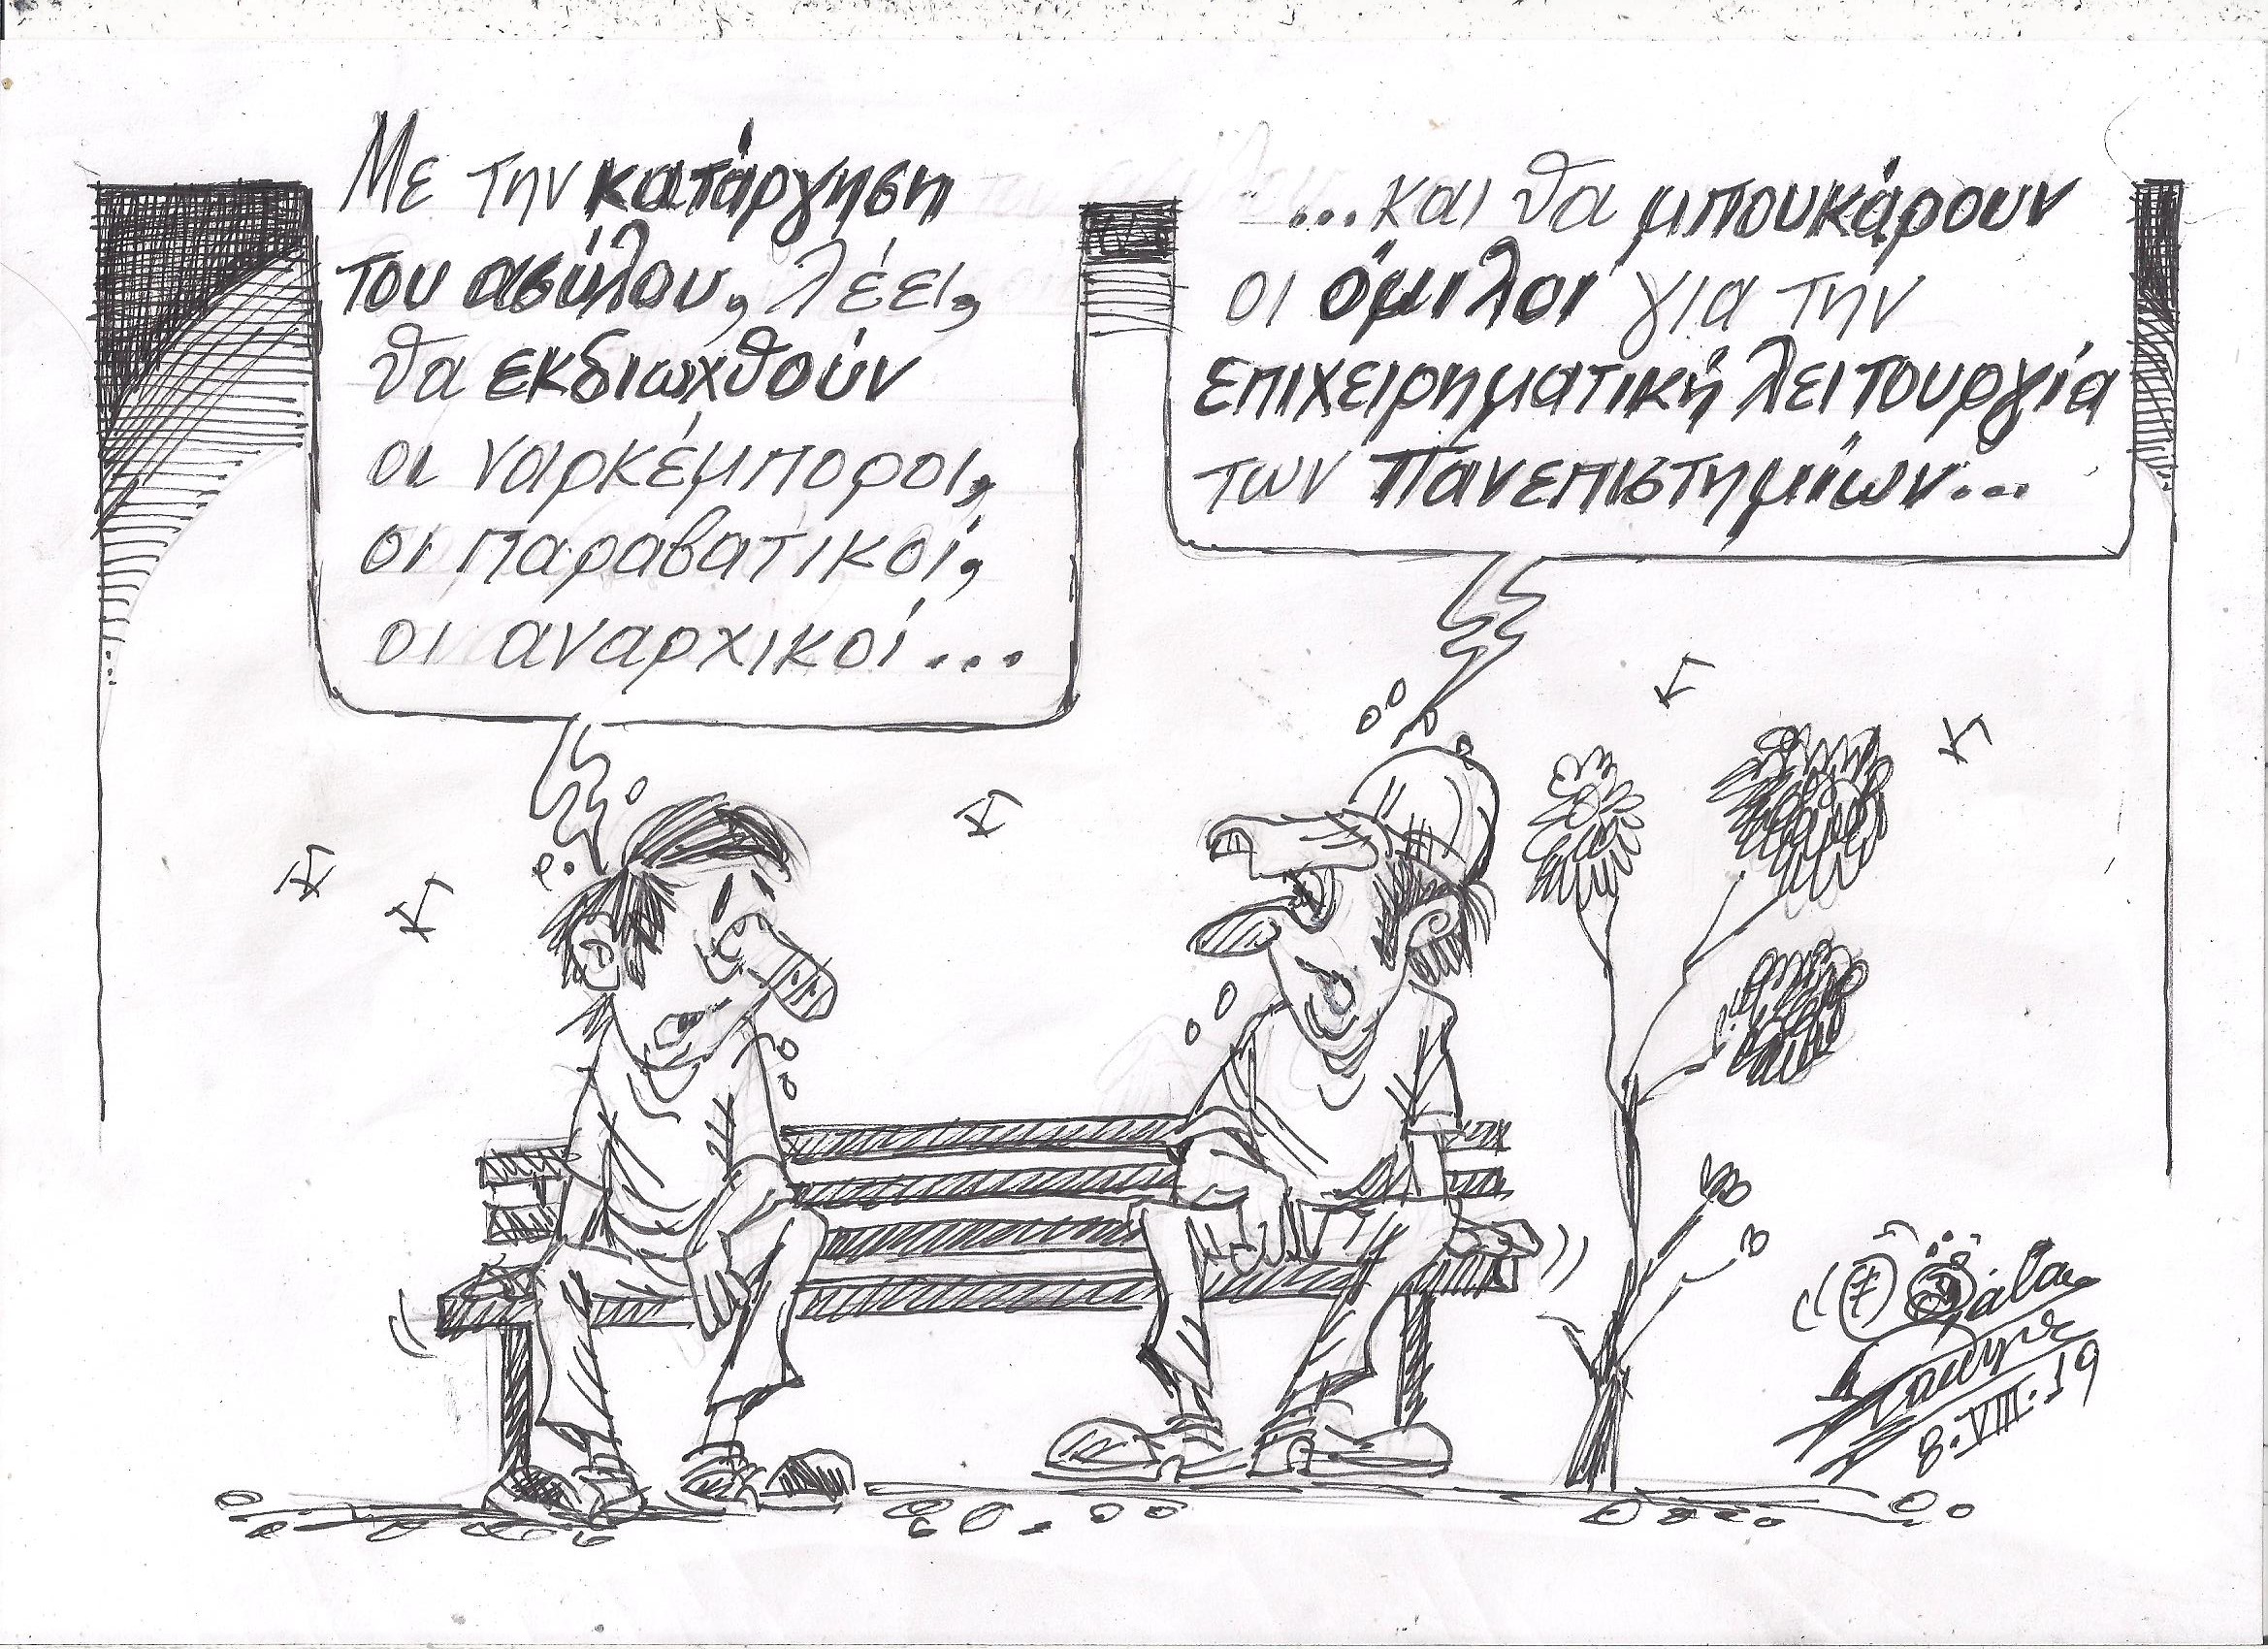 Με την κατάργηση
του ασύλου, λέει,
θα εκδιωχθούν
οι ναρκέμποροι,
οι παραβατικοί,
οι αναρχικοί...
...και θα μπουκάρουν
οι όμιλοι για την
επιχειρηματική λειτουργία
των Πανεπιστημίων...
8.VIII.19